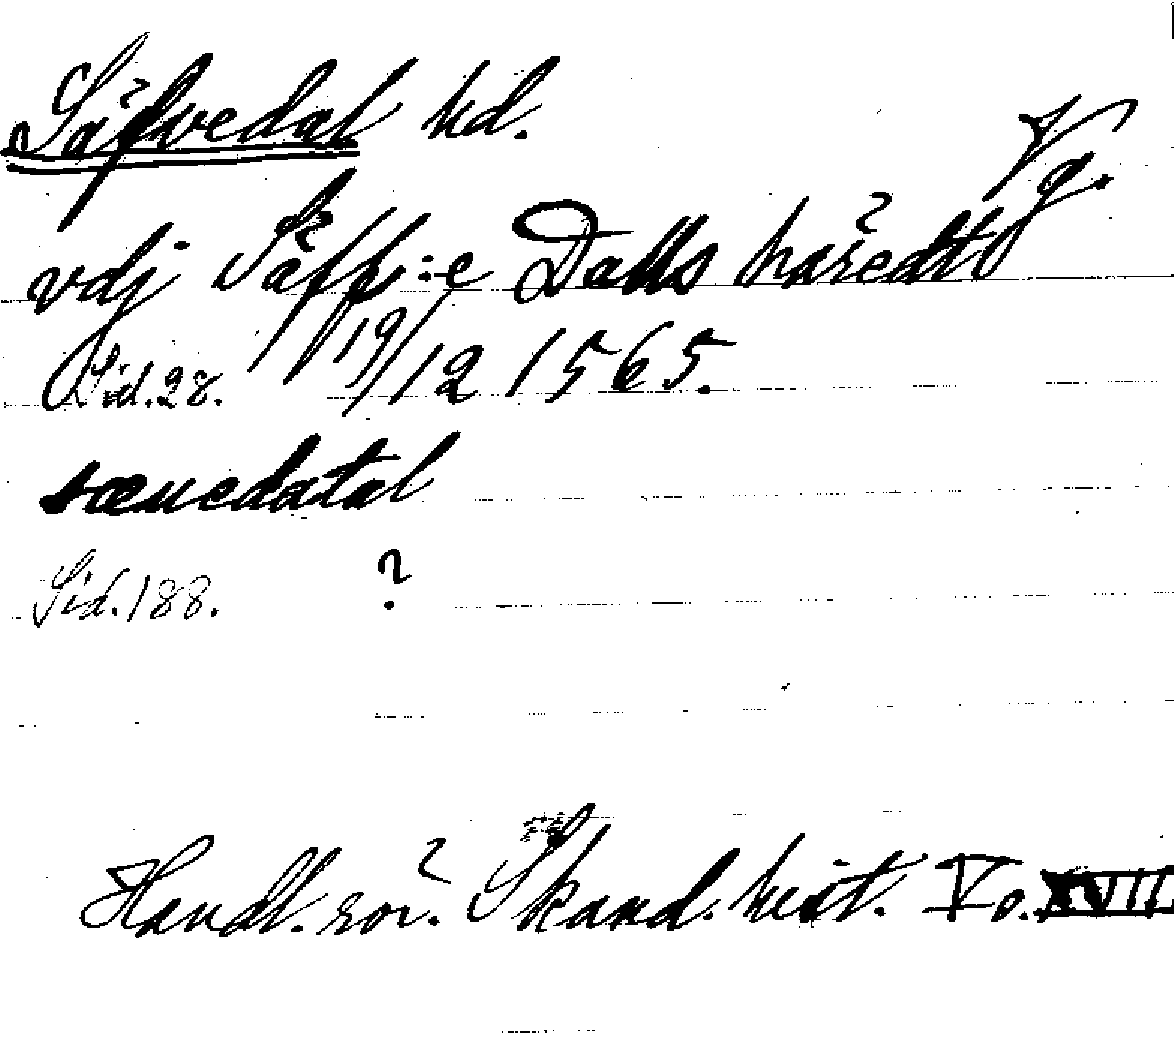 Säfvedal hd.
Vg.
vdj Säffz:e Dalls häredt
Sid. 28. 19/12 1565.
sænedatal
Sid. 188. ?
Handl. rör. Skand. hist. V o. XVII